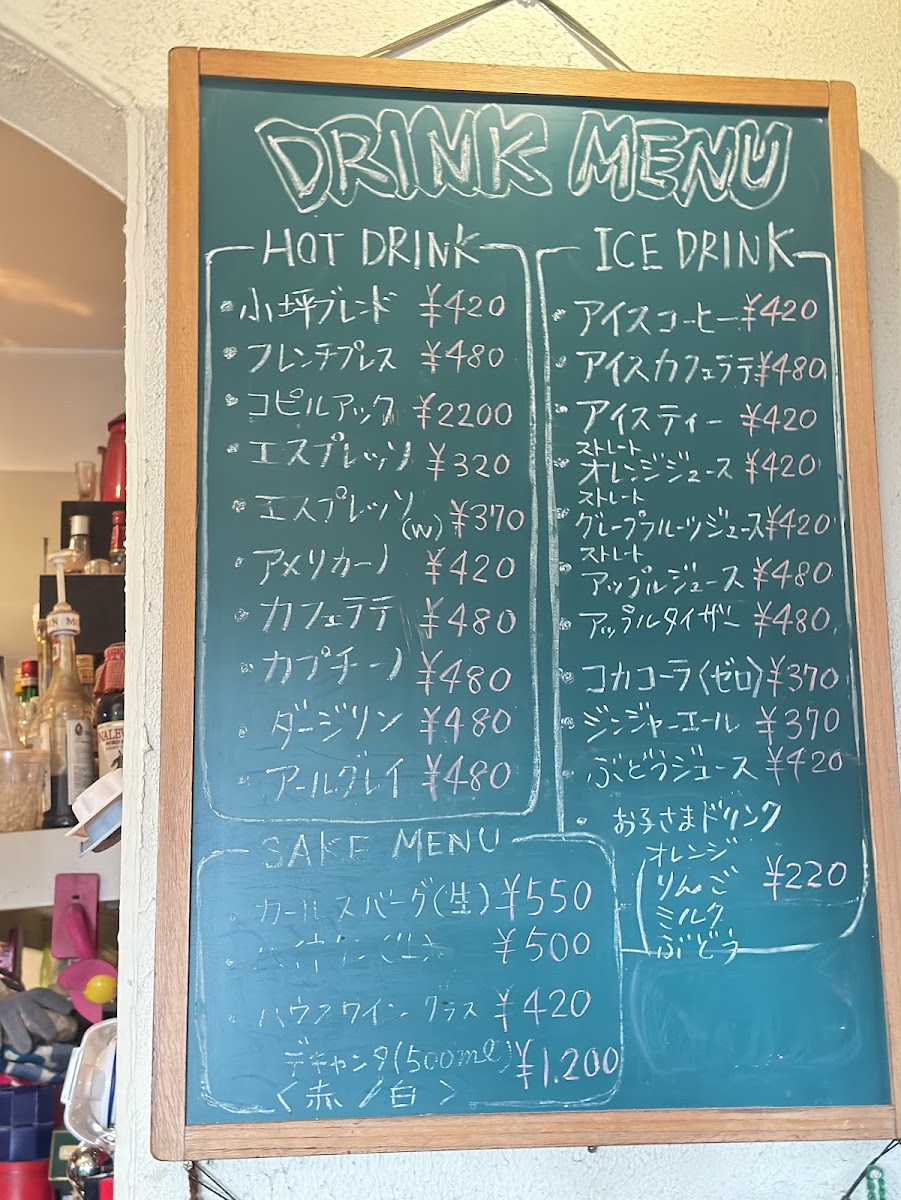 DRINK MENU
HOT DRINK
・小坪ブレンド ¥420
・フレンチプレス ¥480
・コピルアック ¥2200
・エスプレッソ ¥320
・エスプレッソ(W) ¥370
・アメリカーノ ¥420
・カフェラテ ¥480
・カプチーノ ¥480
・ダージリン ¥480
・アールグレイ ¥480
ICE DRINK
・アイスコーヒー ¥420
・アイスカフェラテ ¥480
・アイスティー ¥420
ストレート
・オレンジジュース ¥420
ストレート
・グレープフルーツジュース ¥420
ストレート
・アップルジュース ¥480
・アップルタイザー ¥480
・コカコーラ〈ゼロ〉 ¥370
・ジンジャーエール ¥370
・ぶどうジュース ¥420
・お子さまドリンク
オレンジ
りんご ¥220
ミルク
ぶどう
SAKE MENU
・カールスバーグ(生) ¥550
¥500
・ハウスワイン グラス ¥420
デキャンタ(500ml) ¥1.200
〈赤/白〉